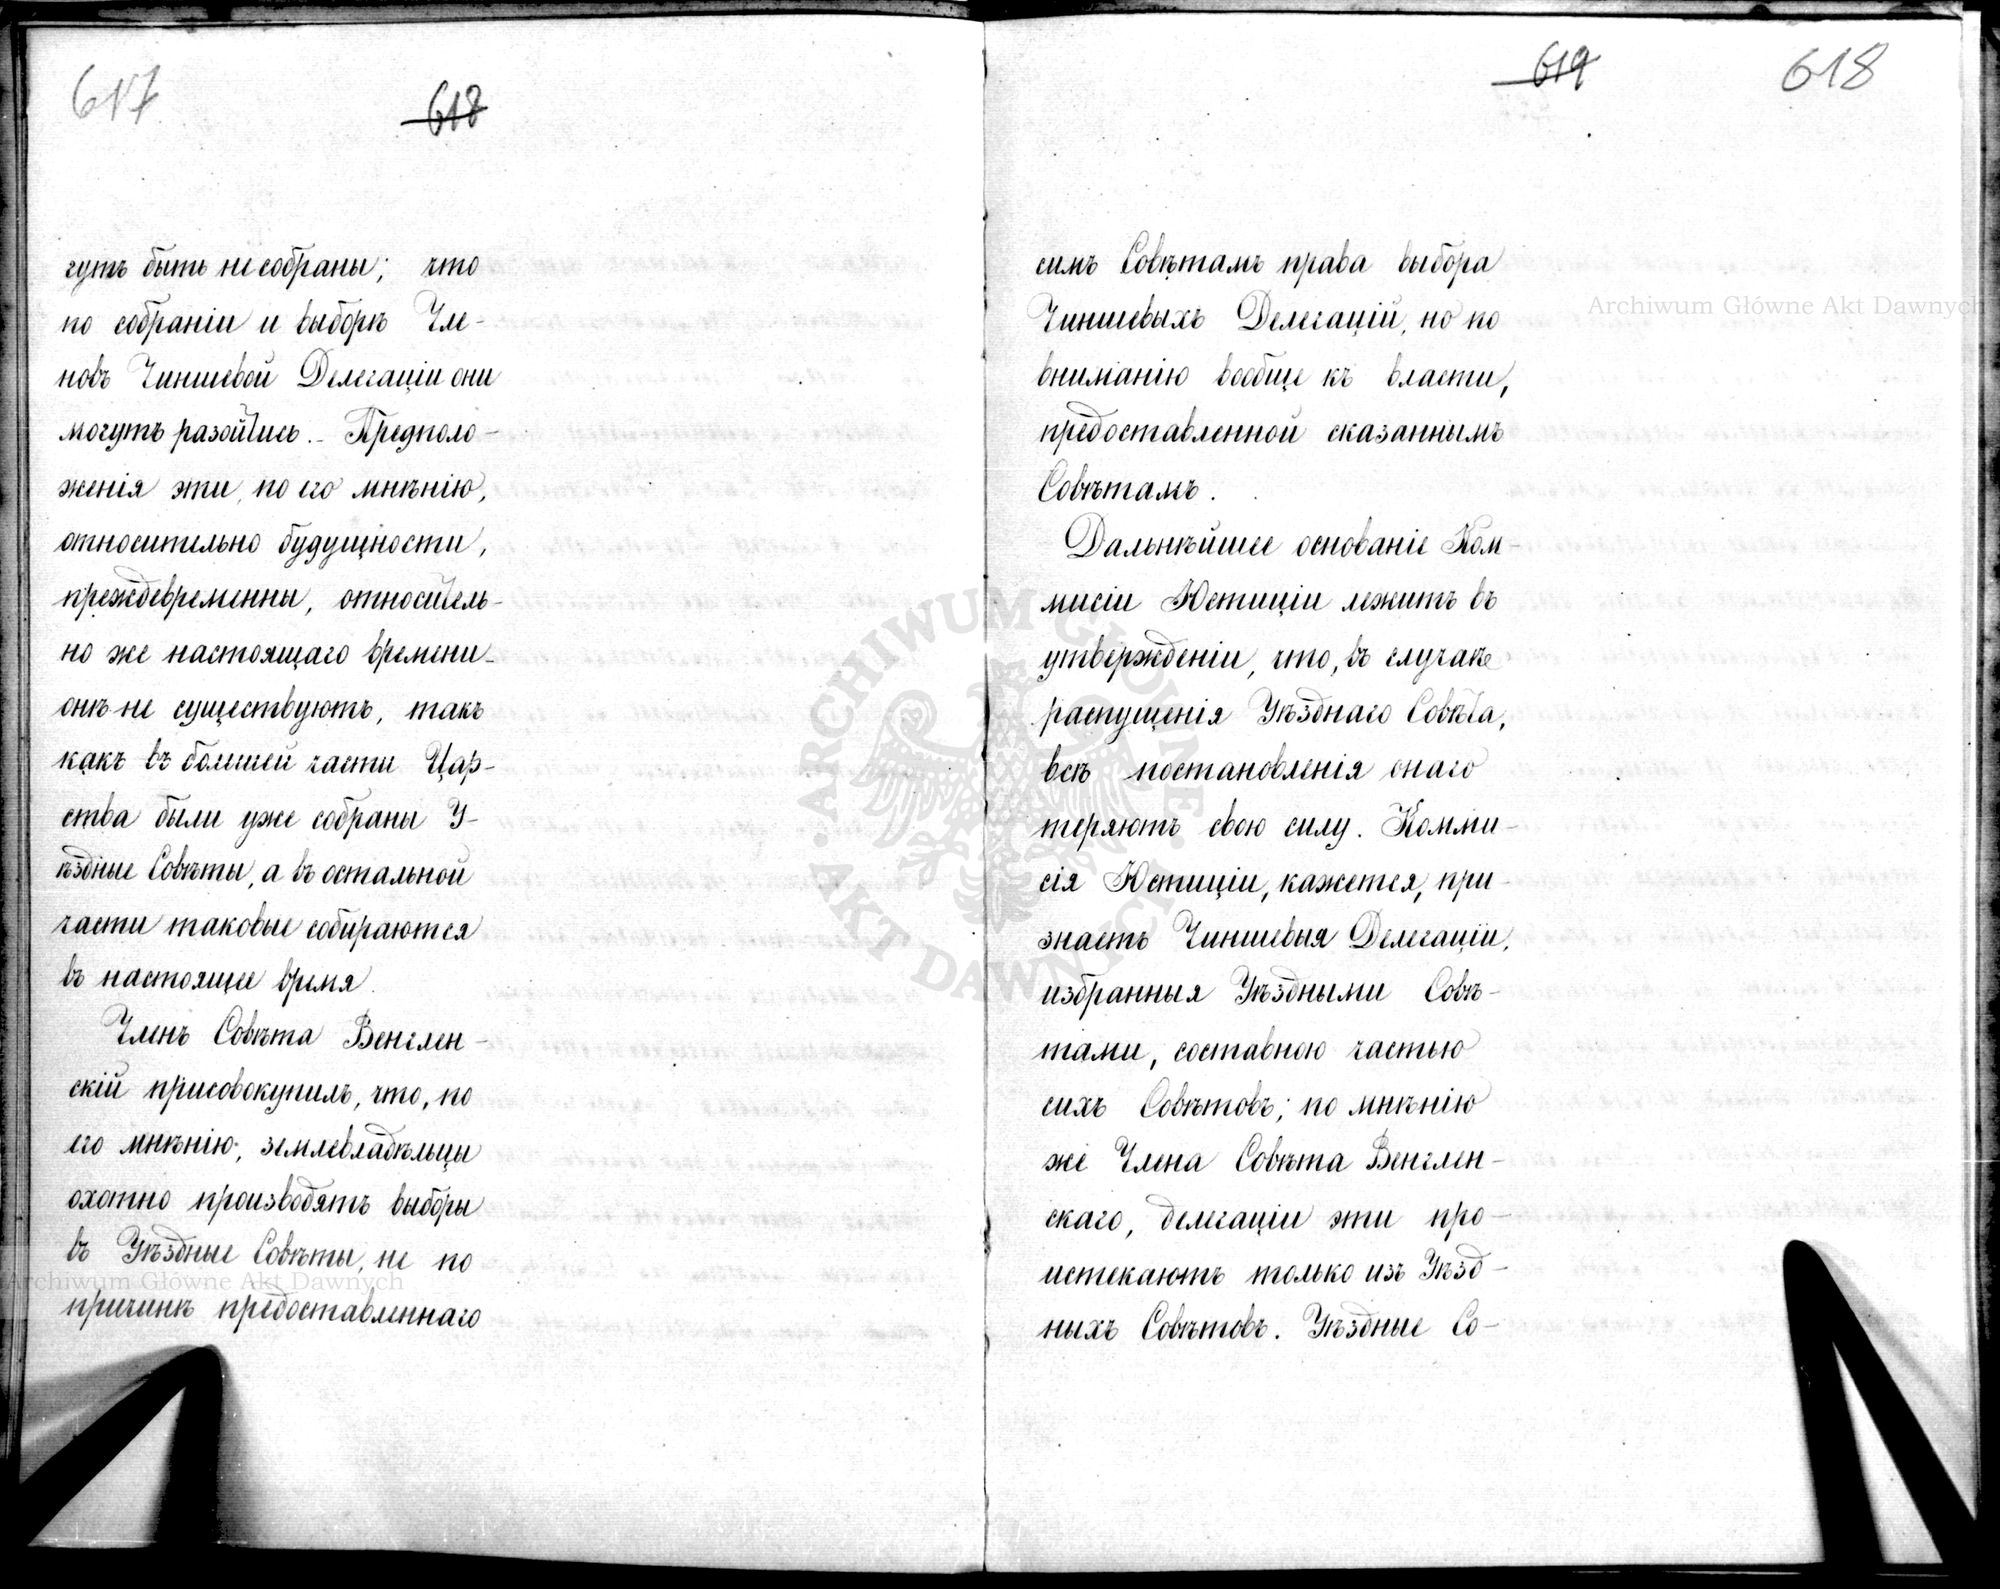 617
618
гутъ быть не собраны; что
по собраніи и выборѣ Чле-
новъ Чиншевой Делегаціи они
могутъ разойтись. - Предполо-
женія эти, по его мнѣнію,
относительно будущности,
преждевременны, относитель-
но же настоящаго времени -
онѣ не существуютъ, такъ
какъ въ большей части Цар-
ства были уже собраны У-
ѣздные Совѣты, а въ остальной
части таковые собираются
въ настоящее время.
Членъ Совѣта Венглен-
скій присовокупилъ, что, по
его мнѣнію, землевладѣльцы
охотно производятъ выборы
въ Уѣздные Совѣты, не по
причинѣ предоставленнаго
Archiwum Główne Akt Dawnych
619
618
симъ Совѣтамъ права выбора
Чиншевыхъ Делегацій, но по
вниманію вообще къ власти,
предоставленной сказаннымъ
Совѣтамъ.
Дальнѣйшее основаніе Ком-
мисіи Юстиціи лежитъ въ
утвержденіи, что, въ случаѣ
распущенія Уѣзднаго Совѣта,
всѣ постановленія онаго
теряютъ свою силу. Комми-
сія Юстиціи, кажется, при
знаетъ Чиншевыя Делегаціи,
избранныя Уѣздными Совѣ-
тами, составною частью
сихъ Совѣтовъ; по мнѣнію
же Члена Совѣта Венглен-
скаго, делегаціи эти про-
истекаютъ только изъ Уѣзд-
ныхъ Совѣтовъ. Уѣздные Со-
Archiwum Główne Akt Dawnych
ARCHIWUM GŁÓWNE AKT DAWNYCH